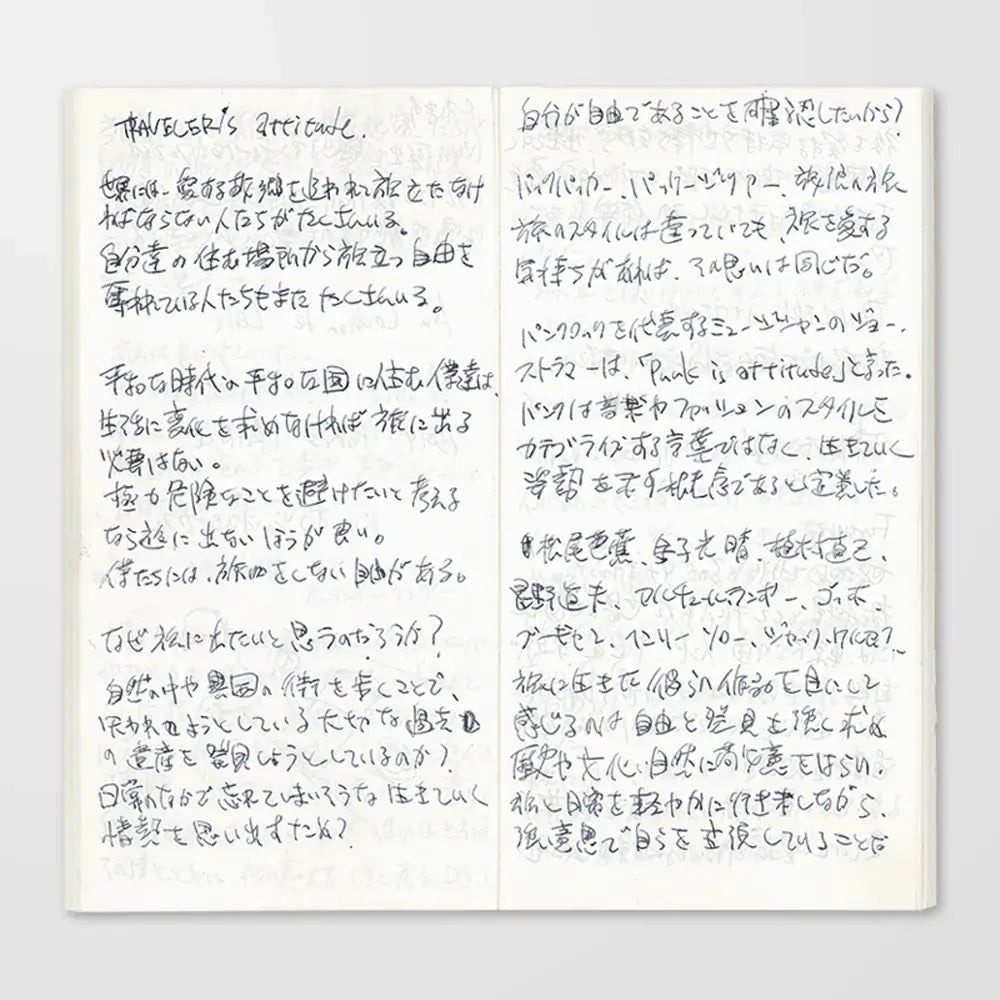 TRAVELER's attitude.
世界には、愛する故郷を追われて旅立たなけ
ればならない人たちがたくさんいる。
自分達の住む場所から旅立つ自由を
奪われている人たちもまたたくさんいる。
平和な時代の平和な国に住む僕達は、
生活に変化を求めなければ旅に出る
必要はない。
極力危険なことを避けたいと考える
なら旅に出ないほうが良い。
僕たちには、旅をしない自由がある。
なぜ旅に出たいと思うのだろうか?
自然の中や異国の街を歩くことで、
失われようとしている大切な過去
の遺産を発見しようとしているのか?
日常のなかで忘れてしまいそうな生きていく
情熱を思い出すため?
自分が自由であることを確認したいから?
バックパッカー、パッケージツアー、放浪の旅
旅のスタイルは違っていても、旅を愛する
気持ちがあれば、その思いは同じだ。
パンクロックを代表するミュージシャンのジョー・
ストラマーは、「Punk is attitude」と言った。
パンクは音楽やファッションのスタイルを
カテゴライズする言葉ではなく、生きていく
姿勢を示す概念であると定義した。
松尾芭蕉、金子光晴、植村直己、
星野道夫、アルチュールランボー、ゴッホ、
ブーヴィエ、ヘンリーソロー、ジャック・ケルアック、
旅に生きた彼らの作品を目にして
感じるのは自由と発見を強く求め
歴史や文化、自然に敬意をはらい、
旅と日常を軽やかに行き来しながら、
強い意思で自らを表現していることだ